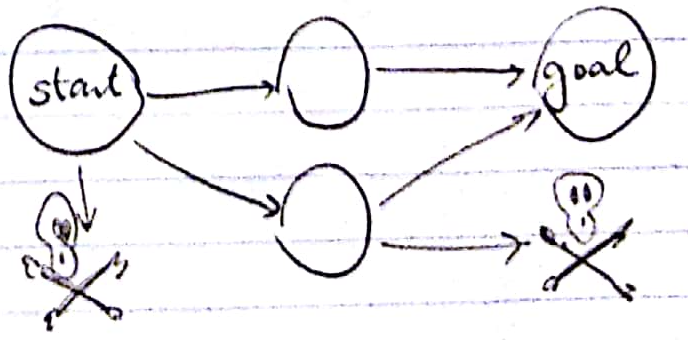 start
goal